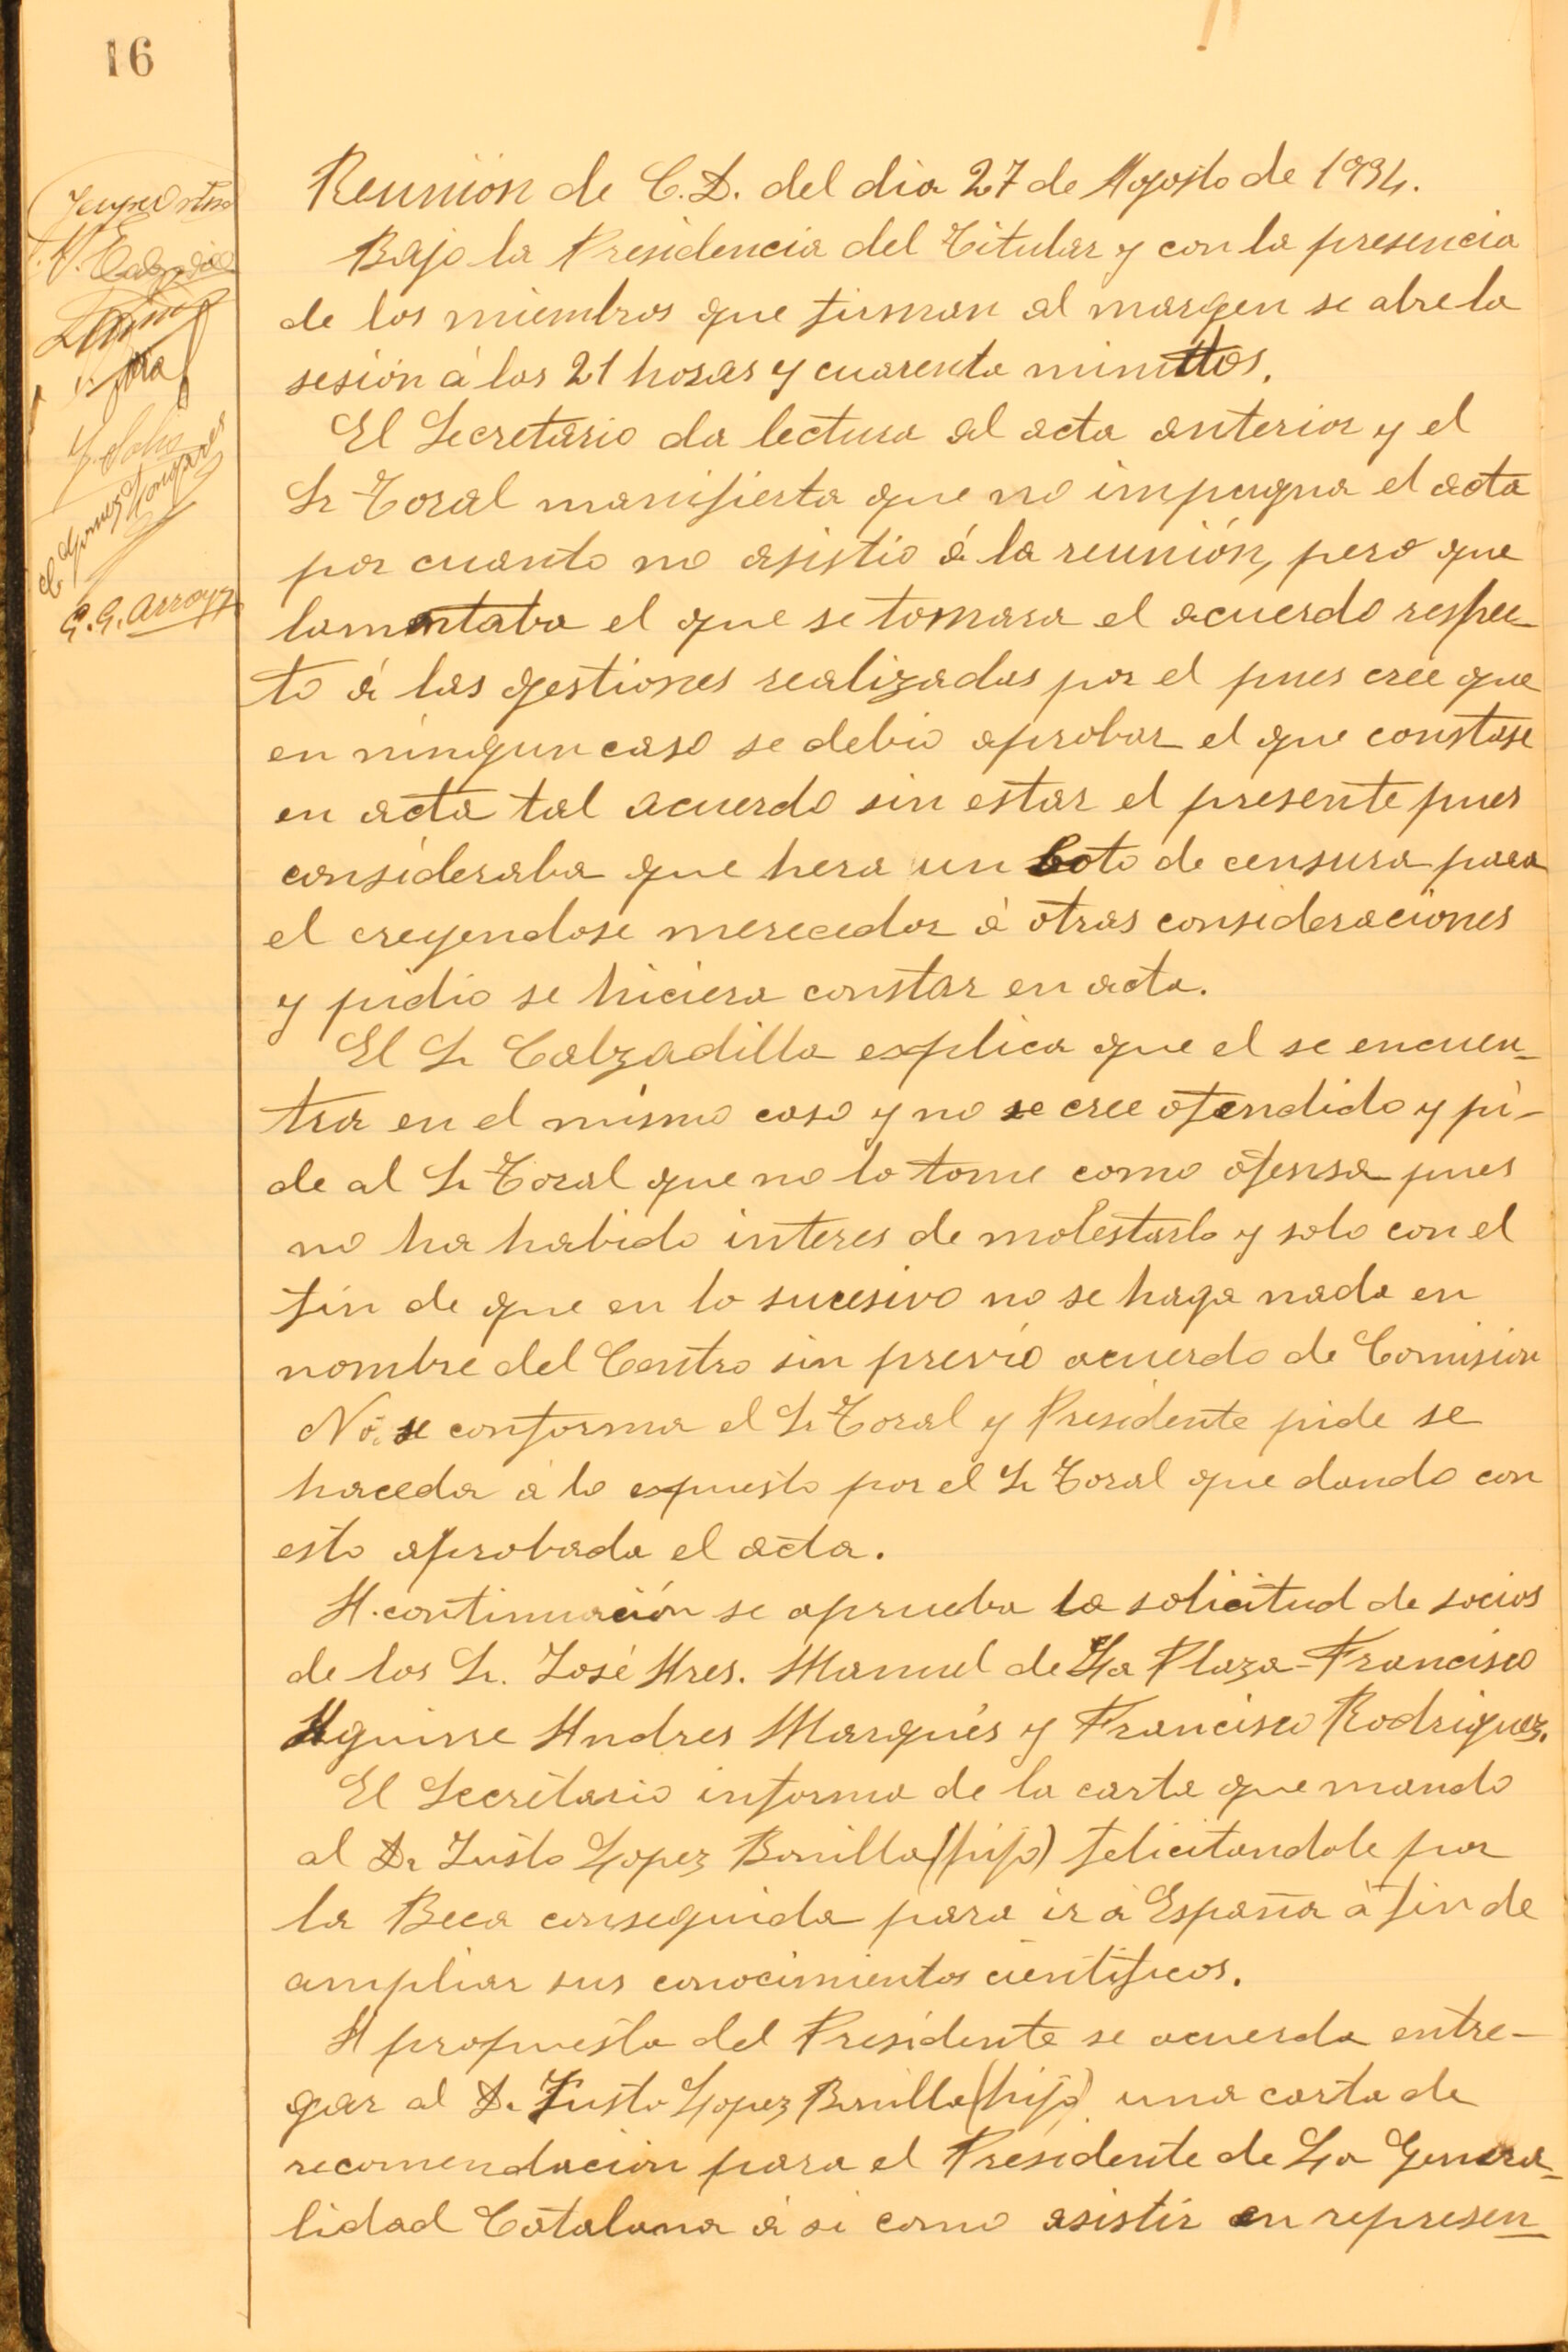 16
Reunión de C.D. del dia 27 de Agosto de 1934.
Bajo la Presidencia del Titular y con la presencia
de los miembros que firman al margen se abre la
sesión á las 21 horas y cuarenta minutos.
El Secretario da lectura al acta anterior y el
Sr Toral manifiesta que no impugna el acta
por cuanto no asistio á la reunión, pero que
lamentaba el que se tomara el acuerdo respec-
to á las gestiones realizadas por el pues cree que
en ningun caso se debio aprobar el que constase
en acta tal acuerdo sin estar el presente pues
consideraba que hera un boto de censura para
el creyendose merecedor á otras consideraciones
y pidio se hiciera constar en acta.
El Sr Calzadilla explica que el se encuen-
tra en el mismo caso y no se cree ofendido y pi-
de al Sr Toral que no lo tome como ofensa pues
no ha habido interes de molestarlo y solo con el
fin de que en lo sucesivo no se haga nada en
nombre del Centro sin previo acuerdo de Comision
No se conforma el Sr Toral y Presidente pide se
haceda á lo expuesto por el Sr Toral que dando con
esto aprobada el acta.
A. continuación se aprueba la solicitud de socios
de los Sr. José Ares. Manuel de La Plaza-Francisco
Aguirre Andres Marqués y Francisco Rodriguez.
El Secretario informa de la carta que mando
al Dr Justo Lopez Bonilla (hijo) felicitandole por
la Beca conseguida para ir á España á fin de
ampliar sus conocimientos cientificos.
A propuesta del Presidente se acuerda entre-
gar al Dr Justo Lopez Bonilla (hijo) una carta de
recomendacion para el Presidente de La Genera-
lidad Catalana á si como asistir en represen-
E.G. Arroyo